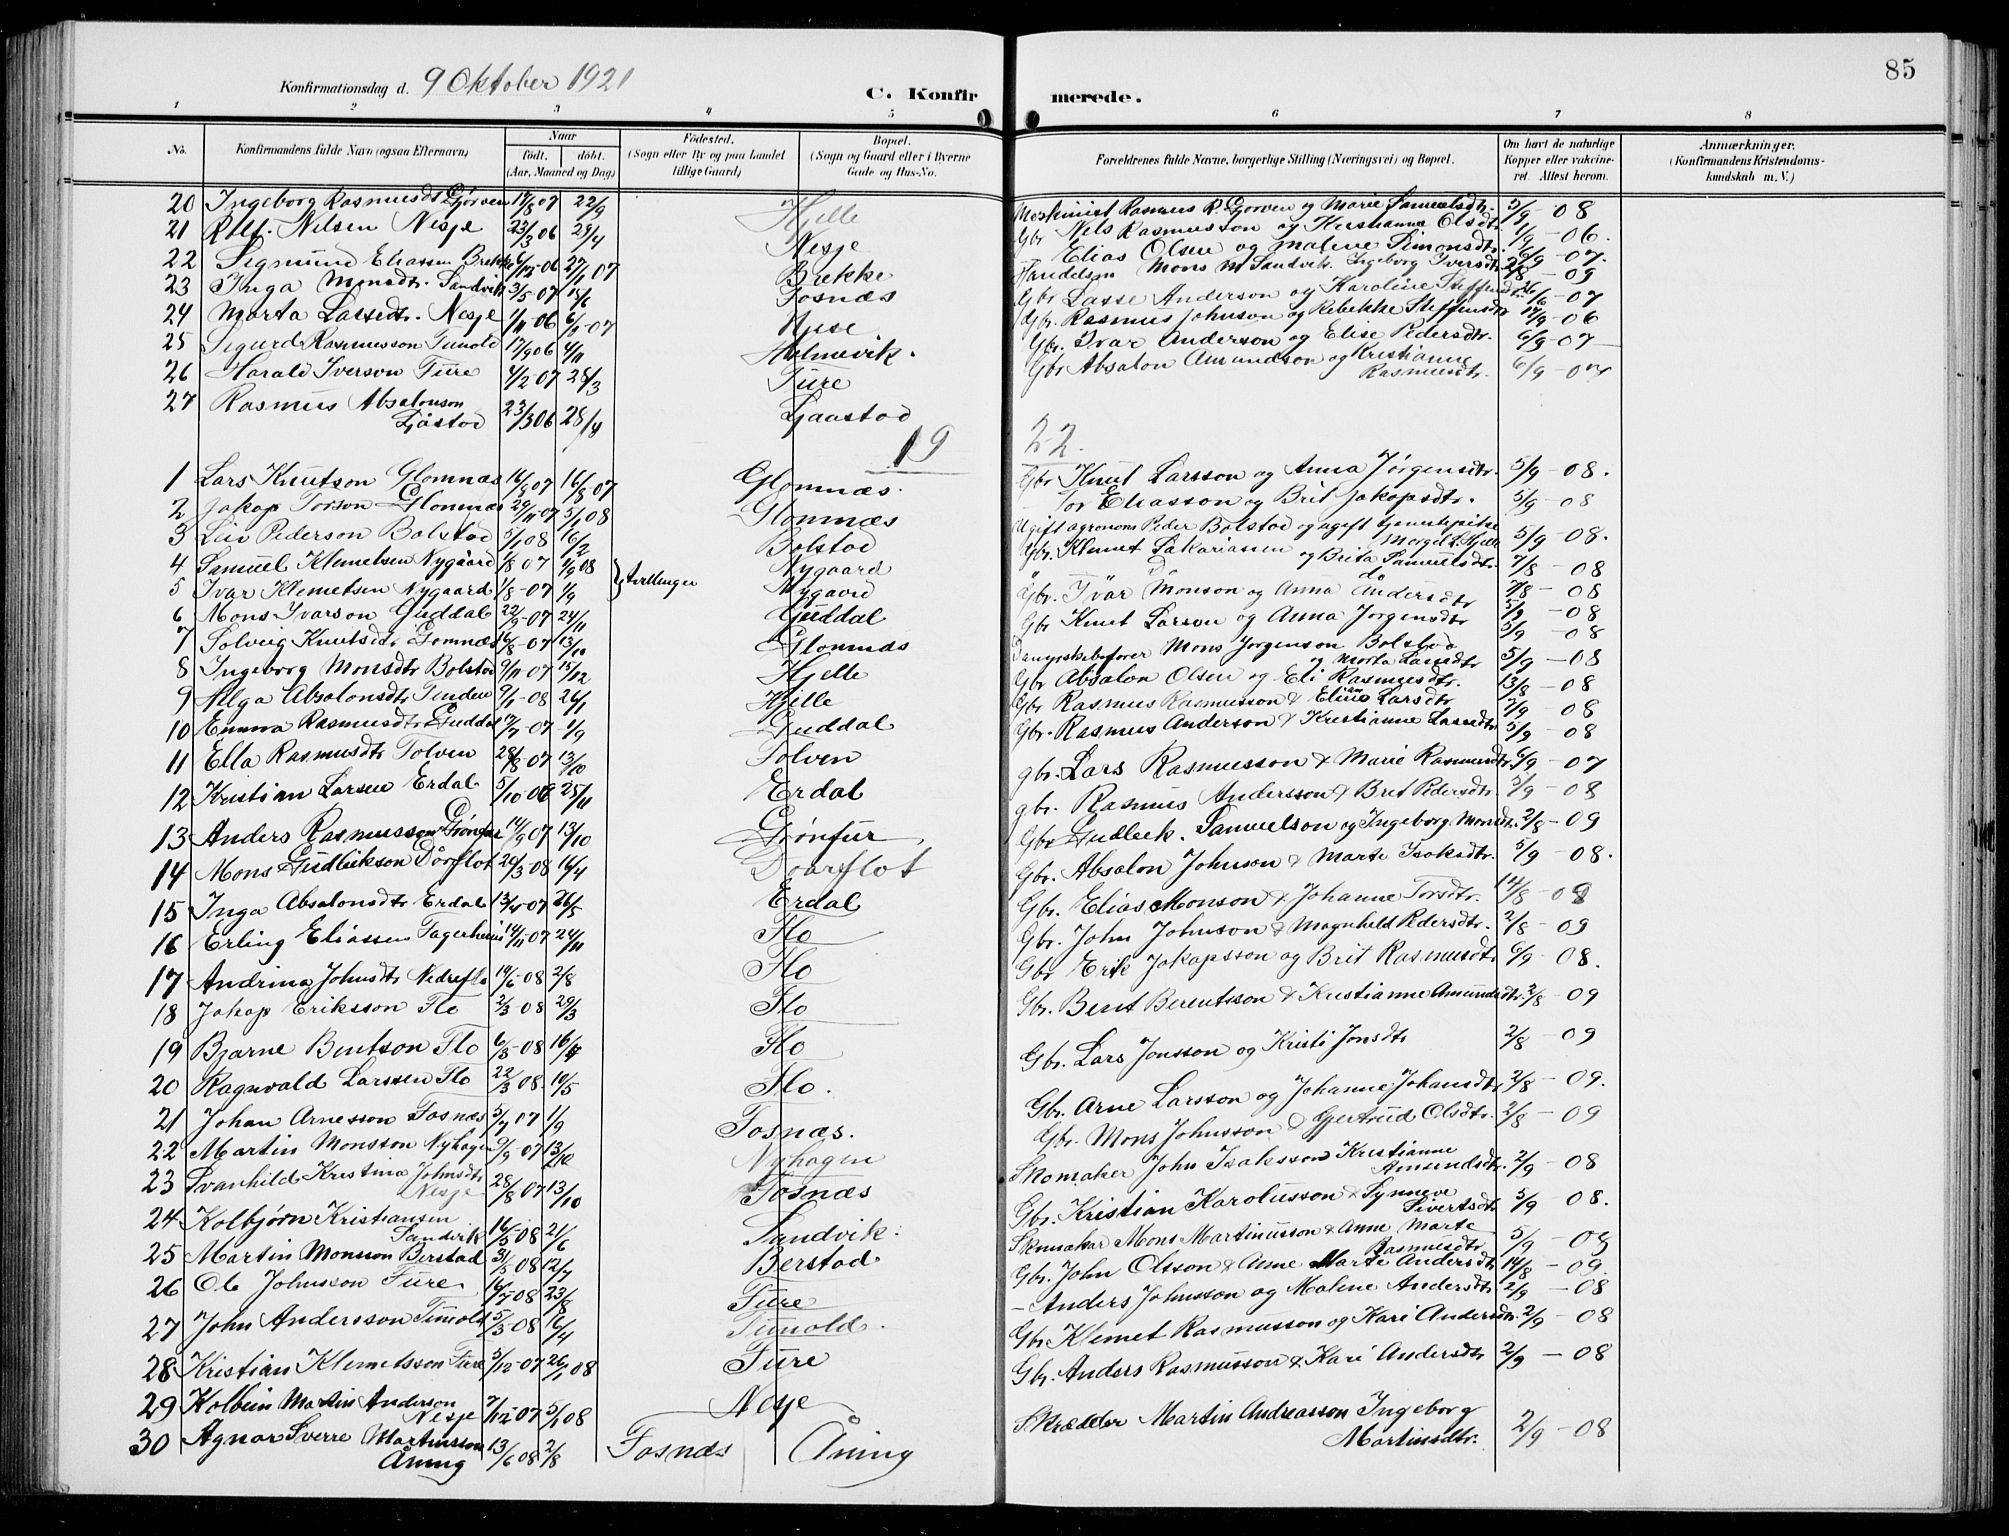 85
Konfirmationsdag d. 9 Oktober 1921
C. Konfirmerede.
1 2 3 4 5 6 7 8
No. Konfirmandens fulde Navn (ogsaa Efternavn) Naar født. døbt. (Aar, Maaned og Dag) Fødested. (Sogn eller By og paa Landet tillige Gaard) Bopæl. (Sogn og Gaard eller i Byerne Gade og Hus-No. Forældrenes fulde Navne, borgerlige Stilling (Næringsvei) og Bopæl. Om havt de naturlige Kopper eller vakcineret. Attest herom. Anmærkninger. (Konfirmandens Kristendomskundskab m. V.)
20 Ingeborg Rasmusdt Gjørven 17/8 07 22/9 Hjelle Maskinist Rasmus R. Gjørven og Marie Samuelsdtr. 5/9-08
21 Rolf Nilsen Nesje 23/3 06 29/4 Nesje Gbr Nils Rasmusson og Kristianne Olsdtr 1/9-06.
22 Sigmund Eliassen Brekke 6/12-06 27/1 07 Brekke Elias Olsen og Malene Simonsdtr. 6/9-07.
23 Inga Monsdtr. Sandvik 3/5-07 Fosnæs Handelsm Mons M Sandvik. Ingeborg Iversdtr 2/8-09
24 Marta Lassedtr. Nesje 1/11-06 6/1-07 Nesje Gbr Lasse Anderson og Karoline Steffensdtr. 6/9-07
25 Sigurd Rasmusson Tunold 17/9 06 4/11 Holmevik. Gbr. Rasmus Johnson og Rebekke Steffensdtr 17/9-06
26 Harald Iverson Ture 4/2-07 28/3 Ture Gbr. Ivar Anderson og Elise Pedersdtr. 6/9-07
27 Rasmus Absalonson Gjåstad 23/3 06 28/4 Gjaastad Gbr Absalon Amundson og Kristianne Rasmusdtr. 6/9-07
19 22.
1 Lars Knutson Glomnæs 16/7 07 16/8-07 Glomnæs. Gbr Knut Larsson og Anna Jørgensdtr. 5/9-08.
2 Jakop Torson Glomnæs 29/11-07 5/1 08 Glomnæs - Tor Eliasson og Brit Jakopsdtr. 5/9-08
3 Leiv Pederson Bolstad 5/1 08 16/2 Bolstad Ugift agronom Peder Bolstad og ugift tjenestepike Margit T. Hjelle 5/9-08.
4 Samuel Klemetsen Nygaard 1/8 07 1/9 08 } Tvillinger Nygaard Gbr. Klemet Sakariassen og Brita Samuelsdtr. 7/8-08
5 Ivar Klemetsen Nygaard 1/8-07 1/9 Nygaard do do 7/8-08
6 Mons Ivarson Guddal 22/9-07 24/11 Guddal Gbr. Ivar Monson og Anna Andersdtr 5/9-08
7 Solveig Knutsdt. Glomnæs 6/8-07 13/10 Glomnæs Gbr Knut Larson og Anna Jorgensdtr 5/9-08
8 Ingeborg Monsdtr Bolstad 9/11 07 15/12 Hjelle Dampskibsfører Mons Jorgenson Bolstad og Marta Lassedtr 5/9-08
9 Helga Absalonsdtr Tenden 9/1-08 26/1 Hjelle Gbr Absalon Olsen og Eli Rasmusdtr. 13/8-08
10 Emma Rasmusdtr Guddal 17/7-07 1/9 Guddal Gbr Rasmus Rasmusson & Eline Larsdtr 7/9-08
11 Ella Rasmusdtr Tolven 28/8 07 13/10 Tolven Gbr. Rasmus Anderson & Kristianne Lassedtr 5/9-08
12 Kristian Larsen Erdal 5/10-06 25/11 Erdal gbr. Lars Rasmusson & Marie Rasmusdtr 6/9-07
13 Anders Rasmusson Grønfur 14/9 07 13/10 Grønfur gbr. Rasmus Andersson & Brit Pedersdtr 5/9-08
14 Mons Gudleikson Dårflot 20/3 08 16/4 Daarflot Gbr Gudleek. Samuelson og Ingeborg Monsdtr. 2/8-09
15 Inga Absalonsdtr Erdal 13/4-07 26/5 Erdal Gbr. Absalon Johnson & Marte Isaksdtr. 5/9-08.
16 Erling Eliassen Fagerheim 14/11-07 24/11 Flo Gbr. Elias Monson & Johanne Torsdtr. 14/8-08
17 Andrina Johnsdtr Nedreflo 19/6-08 2/8 Flo Gbr. John Johnson & Magnhild Pedersdtr. 2/8-09
18 Jakop Eriksson Flo 2/3 08 29/3 Flo Gbr Erik Jakopsson og Brit Rasmusdtr 6/9-08.
19 Bjarne Bentson Flo 6/3-08 16/4 Flo Gbr. Bent Berentsson & Kristianne Amundsdtr. 2/8-09
20 Ragnvald Larssen Flo 22/3 08. 10/5 Flo. Gbr. Lars Jonsson og Kristi Jonsdtr 2/8-09
21 Johan Arnesson Fosnæs 5/7 07 1/9 Fosnæs. Gbr. Arne Larsson og Johanne Johansdtr 2/8-09.
22 Martin Monsson Nyhagen 9/9-07 13/10 Nyhagen Gbr. Mons Johnsson & Gjertrud Olsdtr. 2/8-09
23 Svanhild Kristina Johnsdtr Nesje 28/8 07 13/10 Fosnæs Skomaker John Isaksson Kristianne Amundsdtr. 2/9-08
24 Kolbjørn Kristiansen Sandvik 16/5 08 21/6 Sandvik. Gbr. Kristian Karolusson & Synneve Sivertsdtr 5/9-08.
25 Martin Monsson Berstad 31/5 08 12/7 Berstad Skomaker Mons Martinusson & Anne Marte Rasmusdtr 5/9-08
26 Ole Johnsson Ture 16/7-08 23/8 Ture Gbr. John Olsson & Anne Marte Andersdtr 14/8-09.
27 John Andersson Tunold 5/3-08 6/4 Tunold. - Anders Johnsson og Malene Andersdtr 2/9-08
28 Kristian Klemetsson Ture 5/12-07 26/1 08 Ture Gbr Klemet Rasmusson og Kari Andersdtr. 2/9-08
29 Kolbein Martin Anderson Nesje 7/12-07 5/1 08 Nesje Gbr. Anders Rasmusson & Kari Andersdtr 2/9-08
30 Agnar Sverre Martinsson Åning 13/6 08 2/8 Fosnæs Åning Skrædder Martin Andreasson Ingeborg Martinsdtr. 2/9-08